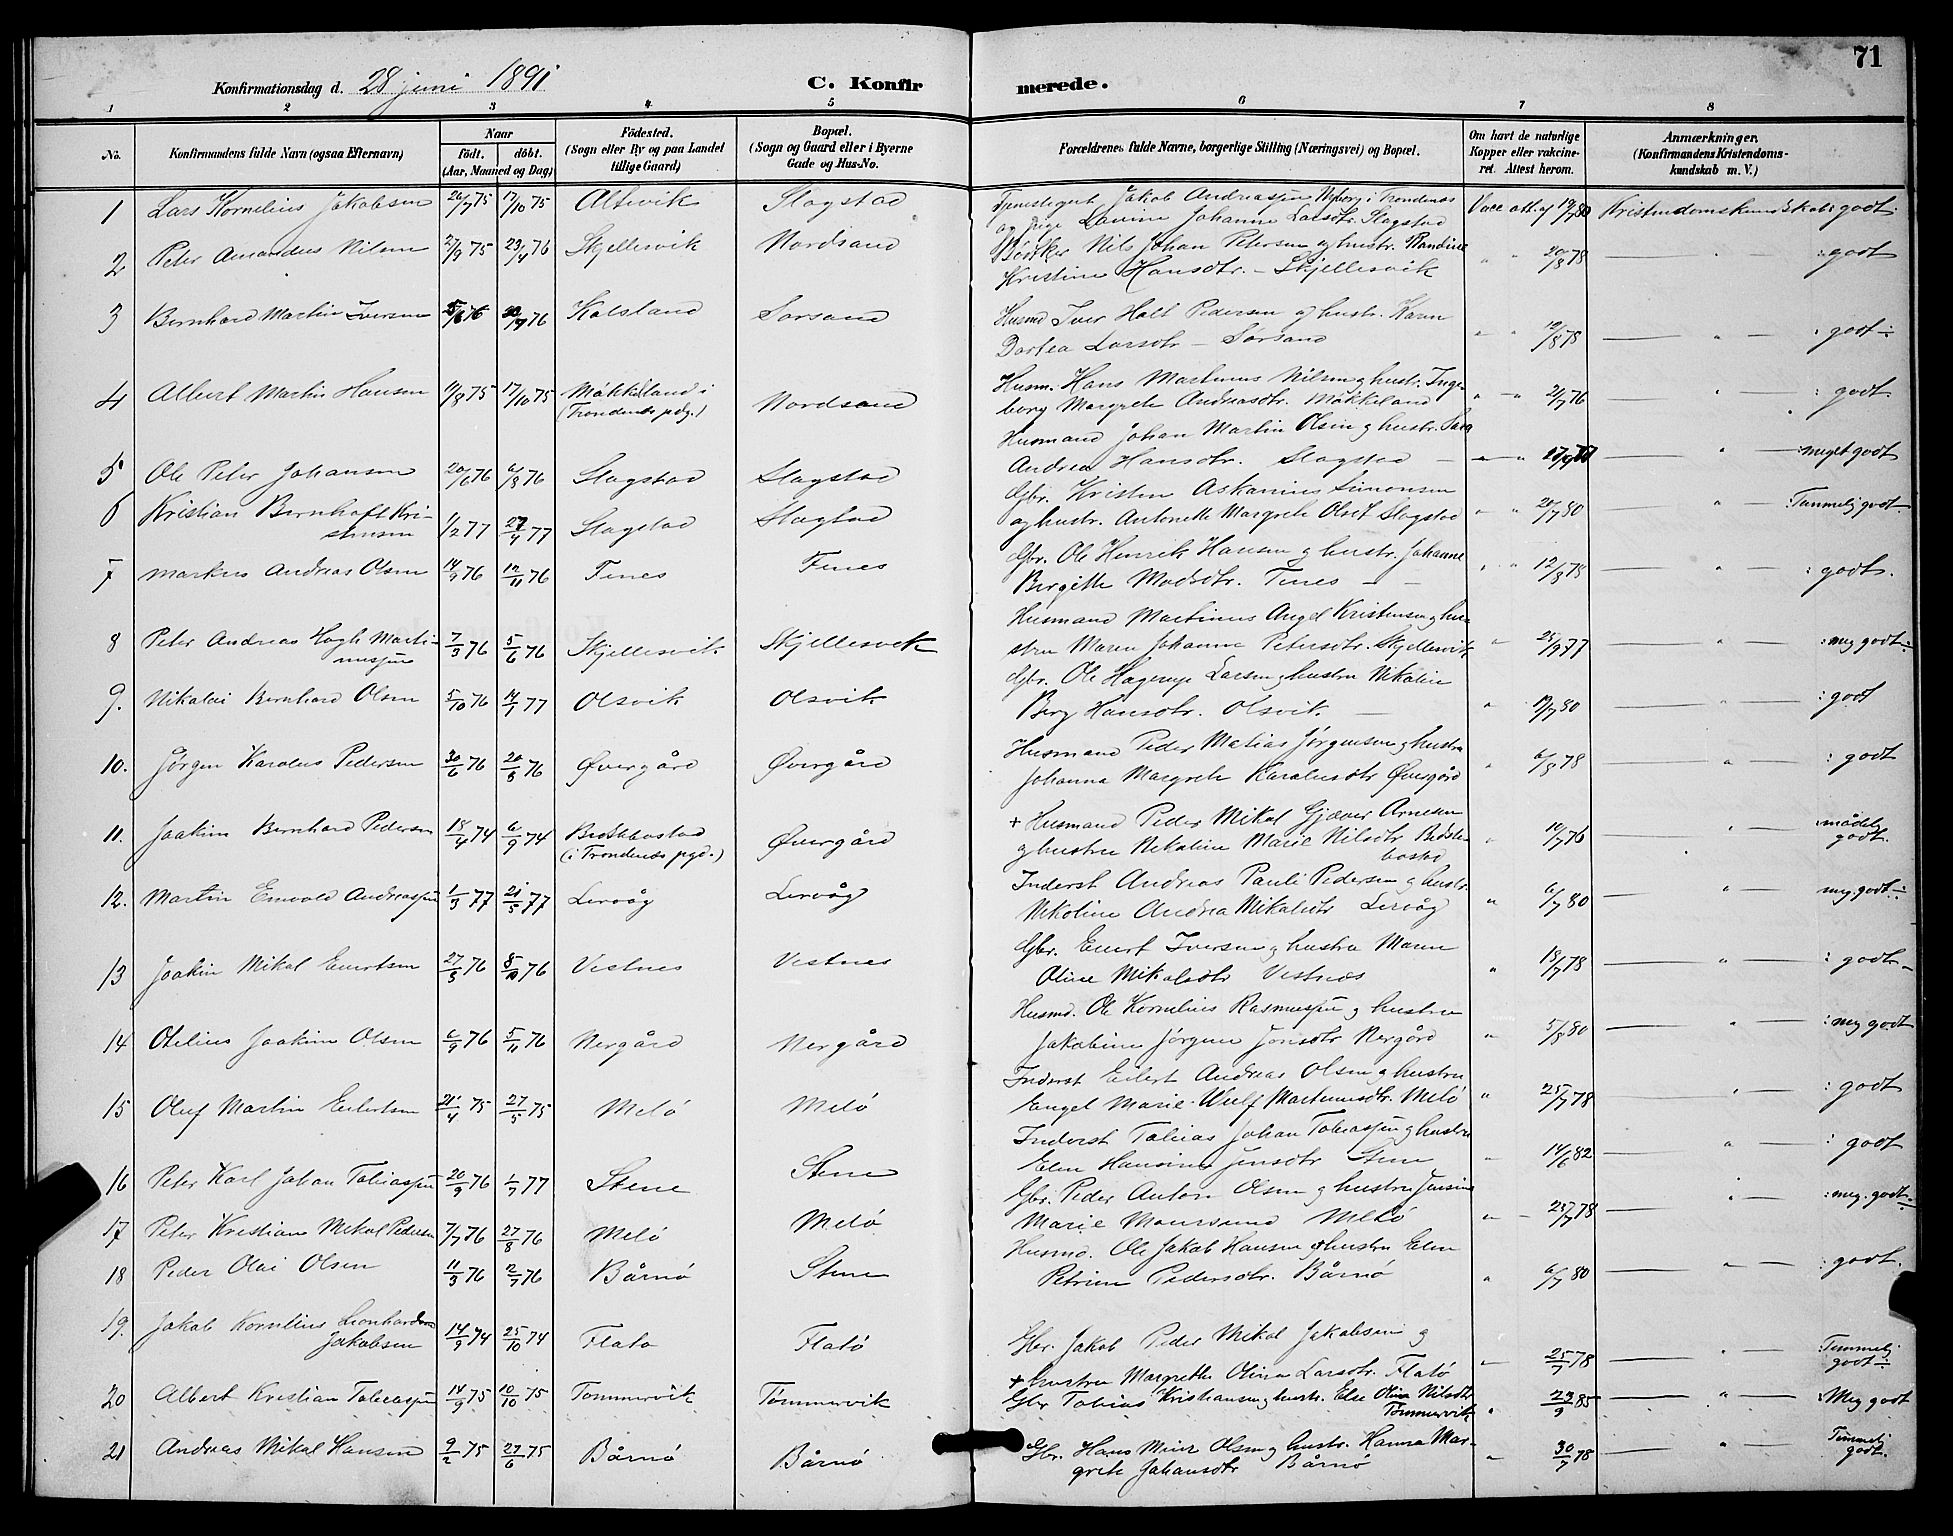 71
Konfirmationsdag d. 28 juni 1891
C. Konfirmerede.
1 2 3 4 5 6 7 8
No.
Konfirmandens fulde Navn (ogsaa Efternavn)
Naar
födt. döbt.
(Aar, Maaned og Dag)
Födested.
(Sogn eller By og paa Landet
tillige Gaard)
Bopæl.
(Sogn og Gaard eller i Byerne
Gade og Hus-No.
Forældrenes fulde Navne, borgerlige Stilling (Næringsvei) og Bopæl.
Om havt de naturlige
Kopper eller vakcine-
ret. Attest herom.
Anmærkninger,
(Konfirmandens Kristendoms-
kundskab m. V.)
1 Lars Kornelius Jakobsen 20/7 75 17/10 75 Altevik Slagstad
Tjenestegut Jakob Andreassen Nyborg i Trondenæs
og Pige Lavine Johanna Larsdtr. Slagstad
Vacc. att. af 19/7 80 Kristendomskundskab: godt.
2 Peter Amandus Nilsen 2/9 75 23/4 76 Skjellesvik Nordsand
Bödker Nils Johan Petersen og hustr. Randine
Kristine Hansdtr. - Skjellesvik
" " 20/8 78 " : godt
3 Bernhard Martin Iversen 5/6 76 30/7 76 Kalsland Sorsand
Husmd Iver Holt Pedersen og hustr. Karen
Dortea Larsdtr - Sörsand
" " 12/8 78 " : godt
4 Albert Martin Hansen 14/8 75 17/10 75 Mökkeland i
(Trondenæs pdg.) Nordsand
Husm. Hans Martinus Nilsen og hustr. Inge-
borg Margrete Andreasdtr. Mökkeland
" " 21/7 76 " : godt.
5 Ole Peter Johansen 20/6 76 6/8 76 Slagstad Slagstad
Husmand Johan Martin Olsen og hustr. Sara
Andrea Hansdtr. Slagstad -
" " 27/9 77 " : meget godt
6 Kristian Bernhoft Kri-
stensen 1/2 77 27/4 77 Slagstad Slagstad
Gbr. Kristen Askanius Simonsen
og hustr. Antonette Margrete Olsdt Slagstad
" " 20/7 80 " : Temmelig godt.
7 Markus Andreas Olsen 14/9 76 12/11 76 Fines Fines
Gbr. Ole Henrik Hansen og hustr. Johanne
Birgitte Madsdtr. Fines - -
" " 12/8 78 " : godt.
8 Peter Andreas Hagh Marti-
nussen 7/3 76 5/6 76 Skjellesvik Skjellesvik
Husmand Martinus Angel Kristensen og hu-
stru Maren Johanna Petersdtr. Skjellesvik
" 25/9 77 " : meg godt
9. Nikolai Bernhard Olsen 5/10 76 14/1 77 Olsvik Olsvik
Gbr. Ole Hagerup Larsen og hustru Nikoline
Berg Hansdtr. Olsvik. -
" 19/7 80 " : godt
10. Jörgen Karolus Pedersen 30/6 76 20/8 76 Øvergård Øvergård
Husmand Peder Matias Jörgensen og hustru
Johanna Margrete Karolusdtr Øvergård
" 6/8 78 " : godt
11. Joakim Bernhard Pedersen 18/4 74 6/9 74
(i Trondenæs pgd.) Øvergård
+ Husmand Peder Mikal Gjæver Arnesen
og hustru Nikoline Marie Nilsdtr
bostad
" 10/7 76 " mådel.
godt.
12. Martin Emvald Andreassen 1/3 77 21/5 77 Lervåg Lervåg
Inderst Andreas Pauli Pedersen og hustr.
Nikoline Andrea Mikalsdtr Lervåg
" 6/7 80 " meg. godt
13 Joakim Mikal Evertsen 27/8 76 8/10 76 Vestnes Vestnes
Gbr. Evert Iversen og hustru Maren
Oline Mikalsdtr Vestnes
" 18/7 78 " : godt
14 Otelius Joakim Olsen 6/9 76 5/11 76 Nergård Nergård
Husmd. Ole Kornelius Rasmussen og hustru
Jakobine Jörgine Jonsdtr Nergård
" 5/8 80 " : meg godt
15 Oluf Martin Eilertsen 21/4 75 27/5 75 Melö Melö
Inderst Eilert Andreas Olsen og hustru
Engel Marie Wulf Martinusdtr. Melö
" 25/7 78 " : godt
16 Peter Karl Johan Tobiassen 20/9 76 1/7 77 Stene Stene
Inderst Tobias Johan Tobiassen og hustru
Elen Hansine Jensdtr Stene
" 14/6 82 " : godt
17 Peter Kristian Mikal Pedersen 7/7 76 27/8 76 Melö Melö
Gbr. Peder Anton Olsen og hustru Jensine
Marie Moursund Melö
" 25/7 78 " : meg. godt
18 Peder Olai Olsen 11/3 76 2/7 76 Bårnö Stene
Husmd. Ole Jakob Hansen og hustru Elen
Petrine Pedersdtr. Bårnö
" 6/7 80 " : godt.
19. Jakob Kornelius Leonhardsen
Jakobsen 14/9 74 25/10 74 Flato Flatö
Gbr. Jakob Peder Mikal Jakobsen og
+ hustru Margrethe Olina Larsdtr. Flatö
" 25/7 78 " Temmelig
godt
20 Albert Kristian Tobiassen 14/9 75 10/10 75 Tommervik Tömmervik
Gbr Tobias Kristiansen og hustr. Else Olina Nilsdtr.
Tömmervik
" 23/9 85 " Meg godt
21 Andreas Mikal Hansen 9/2 75 27/6 75 Bårnö Bårnö
Gbr. Hans Minz Olsen og hustr. Hanna Mar-
grete Johansdtr Bårnö
" 30/7 78 " Temmeli
godt.